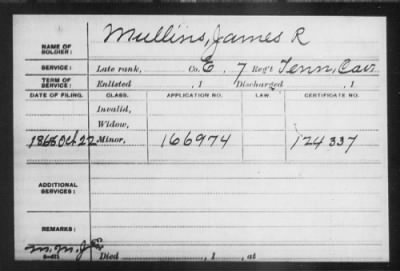 NAME OF SOLDIER: Mullins, James R
SERVICE: Late rank, Co. E, 7 Reg't Tenn. Cav.
TERM OF SERVICE: Enlisted , 1 Discharged , 1
DATE OF FILING. CLASS. APPLICATION NO. LAW. CERTIFICATE NO.
Invalid,
Widow,
Oct 22 Minor, 166974 124337
ADDITIONAL SERVICES:
REMARKS:
Died , 1 , at